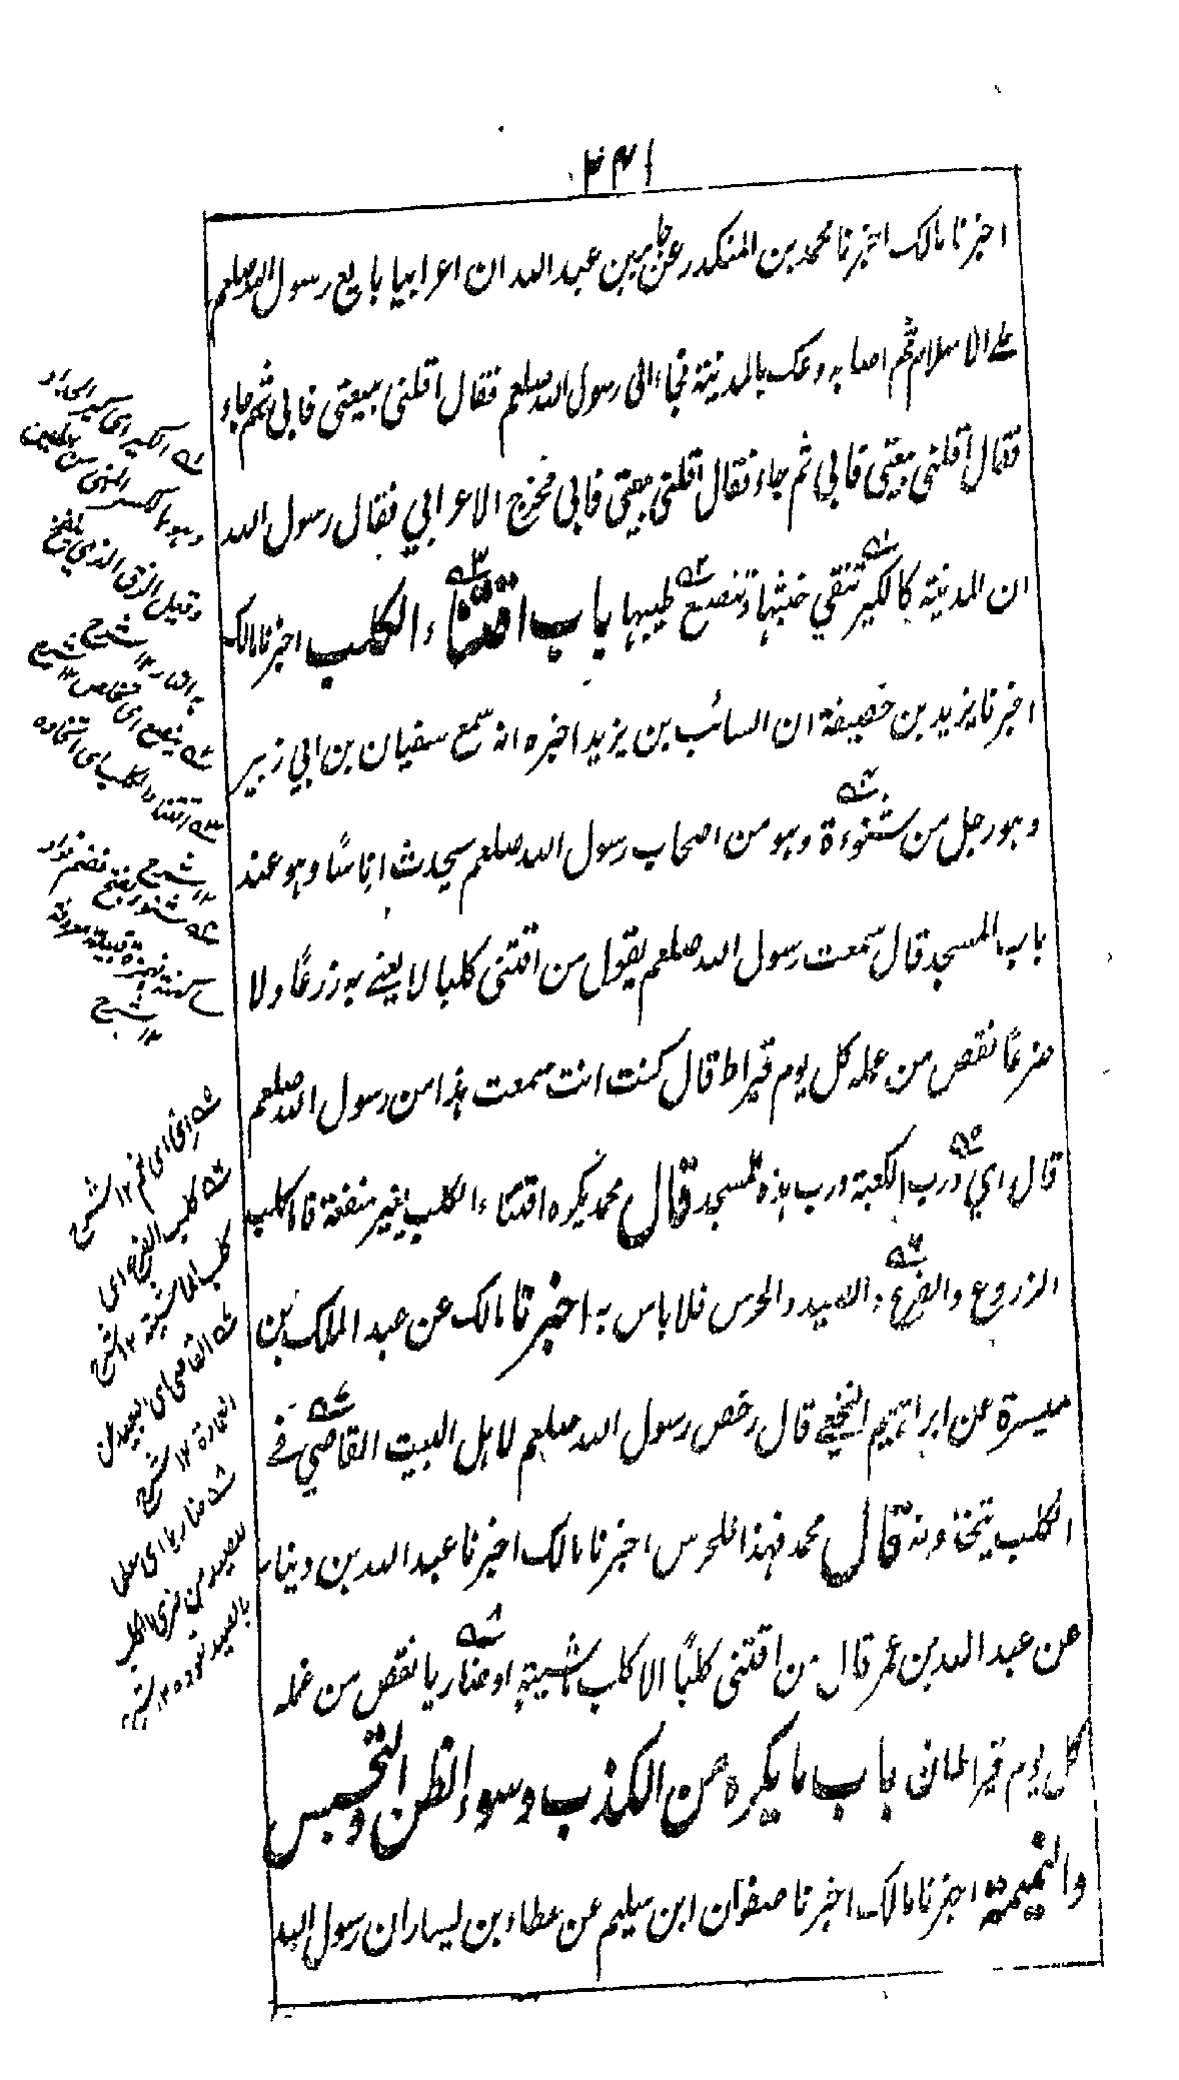 ٣٤١
اخبرنا مالك اخبرنا محمد بن المنكدر عن جابر بن عبد الله ان اعرابيا بايع رسول الله صلعم
على الاسلام ثم اصابه وعك بالمدينة فجاء الى رسول الله صلعم فقال اقلنى بيعتى فابى ثم جاء
فقال اقلنى بيعتى فابى ثم جاء فقال اقلنى بيعتى فابى فخرج الاعرابي فقال رسول الله
ان المدينة كالكير تنقي خبثها وتنصع طيبها باب اقتناء الكلب اخبرنا مالك
اخبرنا يزيد بن خصيفة ان السائب بن يزيد اخبره انه سمع سفيان بن ابي زبير
وهو رجل من شنوءة وهو من اصحاب رسول الله صلعم يحدث اناسًا وهو عند
باب المسجد قال سمعت رسول الله صلعم يقول من اقتنى كلبا لا يغني به زرعًا ولا
ضرعًا نقص من عمله كل يوم قيراط قال كنت انت سمعت هذا من رسول الله صلعم
قال اي ورب الكعبة ورب هذه المسجد قال محمد يكره اقتناء الكلب لغير منفعة فاما كلب
الزروع والضرع والصيد والحرس فلا باس به اخبرنا مالك عن عبد الملك بن
ميسرة عن ابراهيم النخعي قال رخص رسول الله صلعم لاهل البيت القاصي في
الكلب يتخذونه قال محمد فهذا للحرس اخبرنا مالك اخبرنا عبد الله بن دينار
عن عبد الله بن عمر قال من اقتنى كلبًا الا كلب ماشية او ضاريا نقص من عمله
كل يوم قيراطان باب ما يكره من الكذب وسوء الظن والتجسس
والنميمة اخبرنا مالك اخبرنا صفوان ابن سليم عن عطاء بن يسار ان رسول الله
له الكير اى كير الحداد
وهو
وقيل الزق الذي ينفخ
به النار ١٢ شرح
ينصع اى يخلص ١٢ شرح
اقتناء الكلب اى اتخاذه
١٢ شرح
شنوءة بفتح فضم فواو
ساكنة فهمزة قبيلة معروفة
١٢ شرح
اى اى نعم ١٢ شرح
كلب الضرع اى
كلب الماشية ١٢ شرح
القاصي اى البعيد عن
العمارة ١٢ شرح
ضاريا اى
للصيد من ضرى الكلب
بالصيد تعوده ١٢ شرح